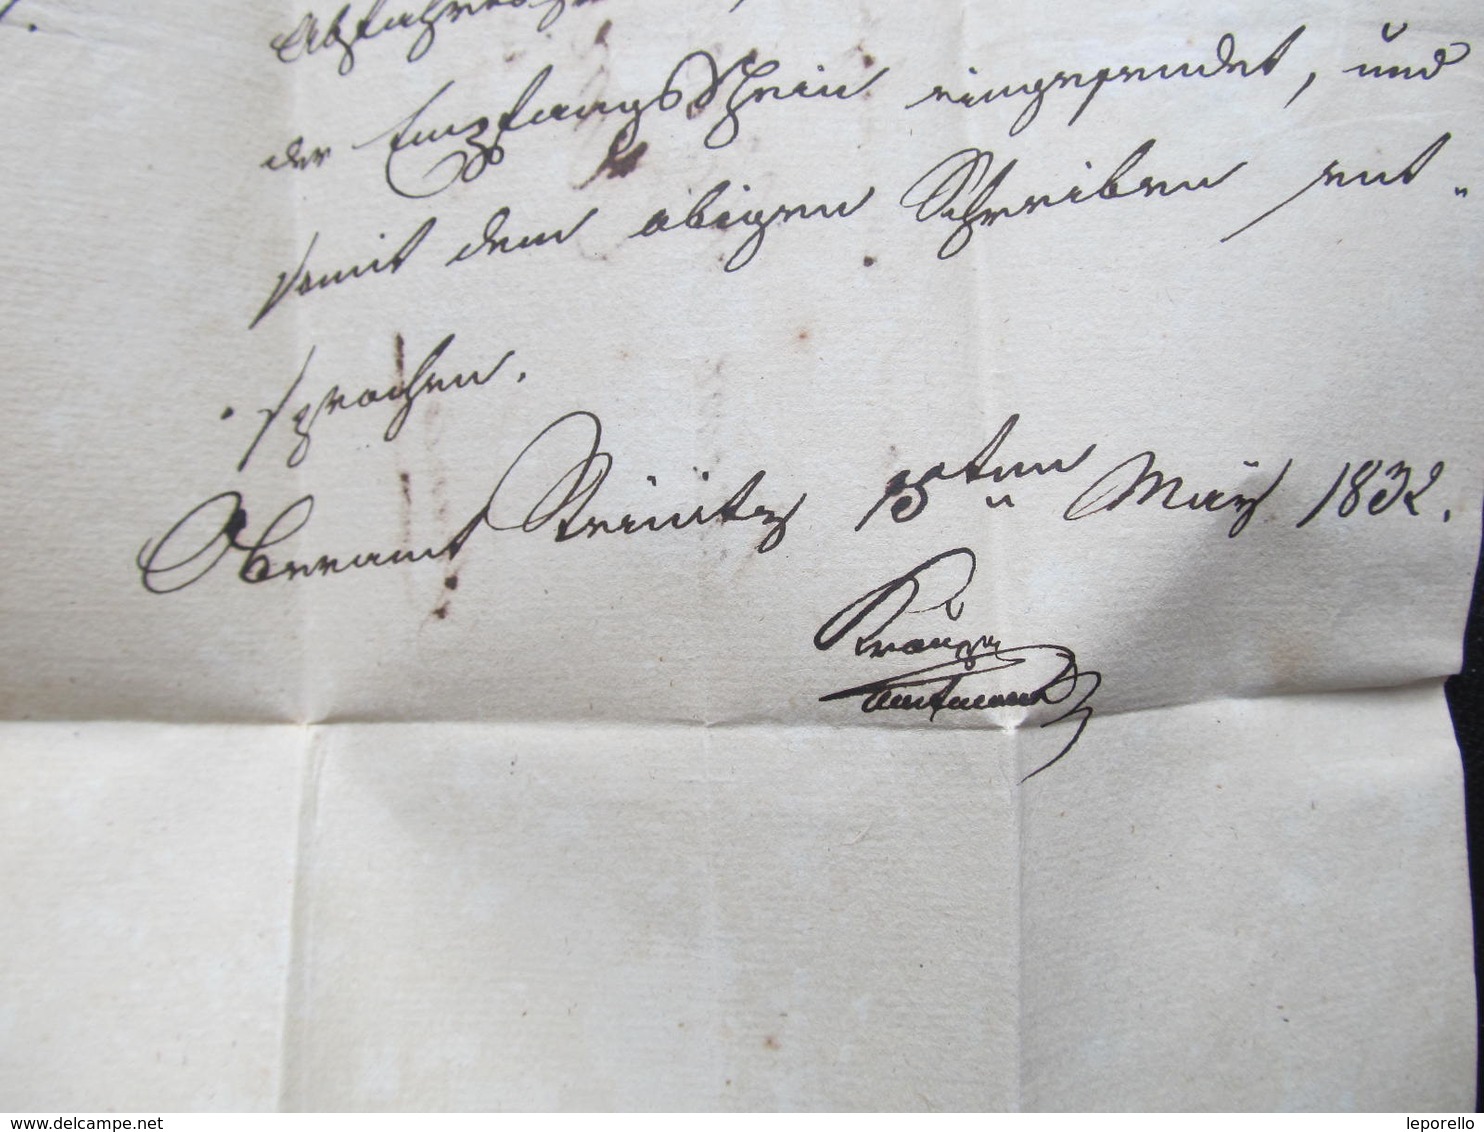 der EmpfangsSchein eingesendet, und
somit dem obigen Schreiben ent„
sprochen.
Oberamt 15ten März 1832.
Amtmann
© www.delcampe.net
leporello